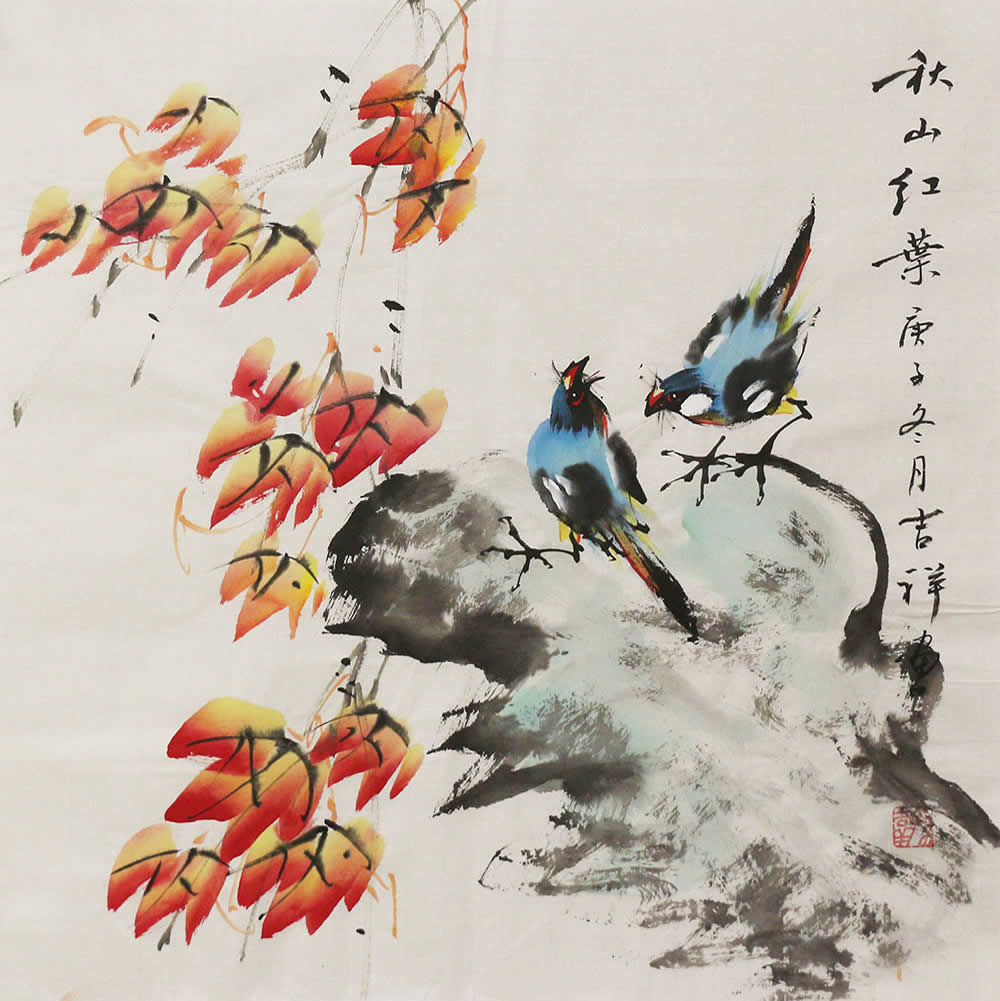 秋山红葉庚子冬月吉祥畫